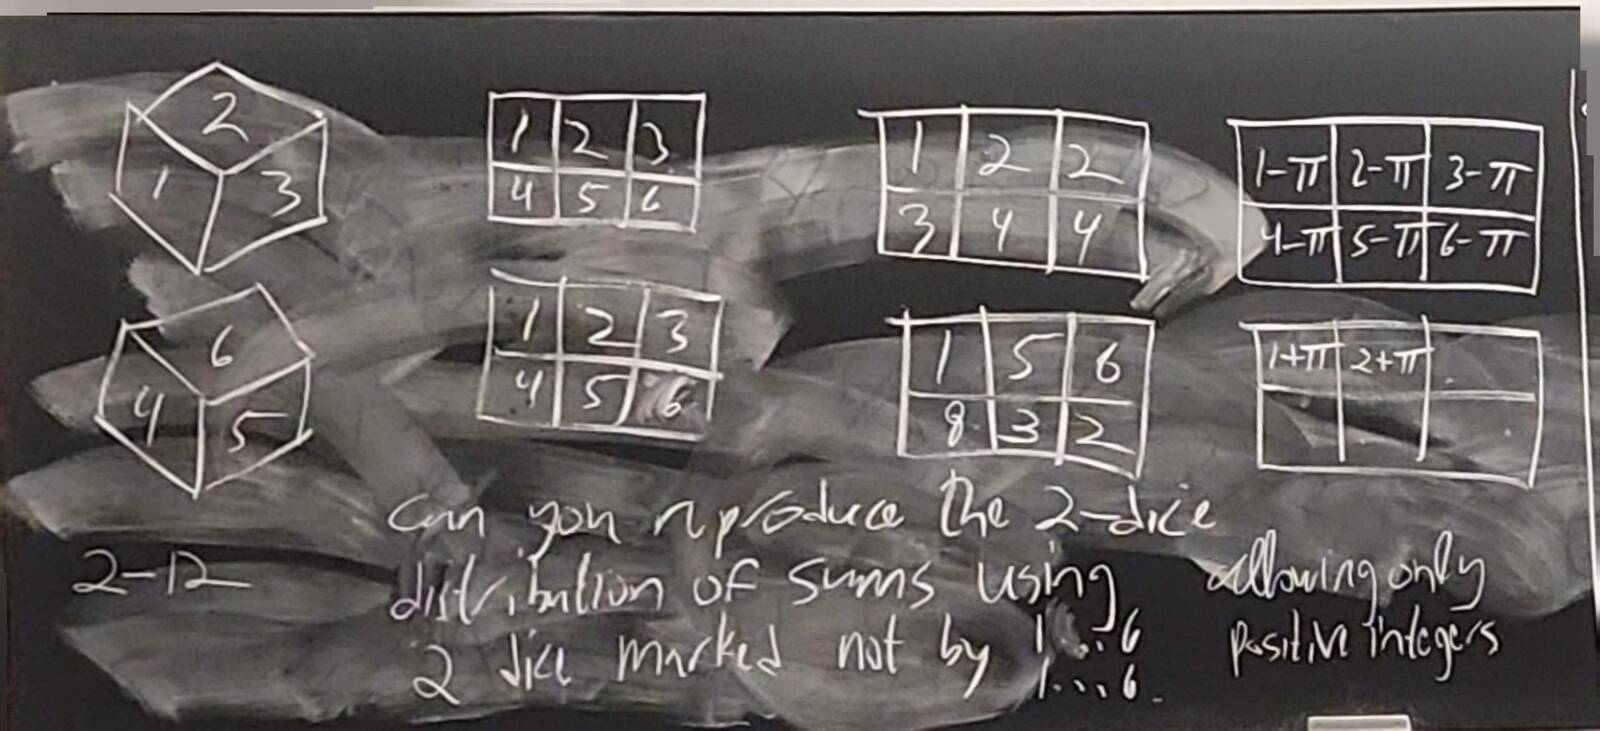 2
1 3
1 2 3
4 5 6
1 2 2
3 4 4
1-π 2-π 3-π
4-π 5-π 6-π
6
4 5
1 2 3
4 5 6
1 5 6
8 3 2
1+π 2+π
2-12
can you reproduce the 2-dice
distribution of sums using
2 dice marked not by 1...6
1...6.
allowing only
positive integers